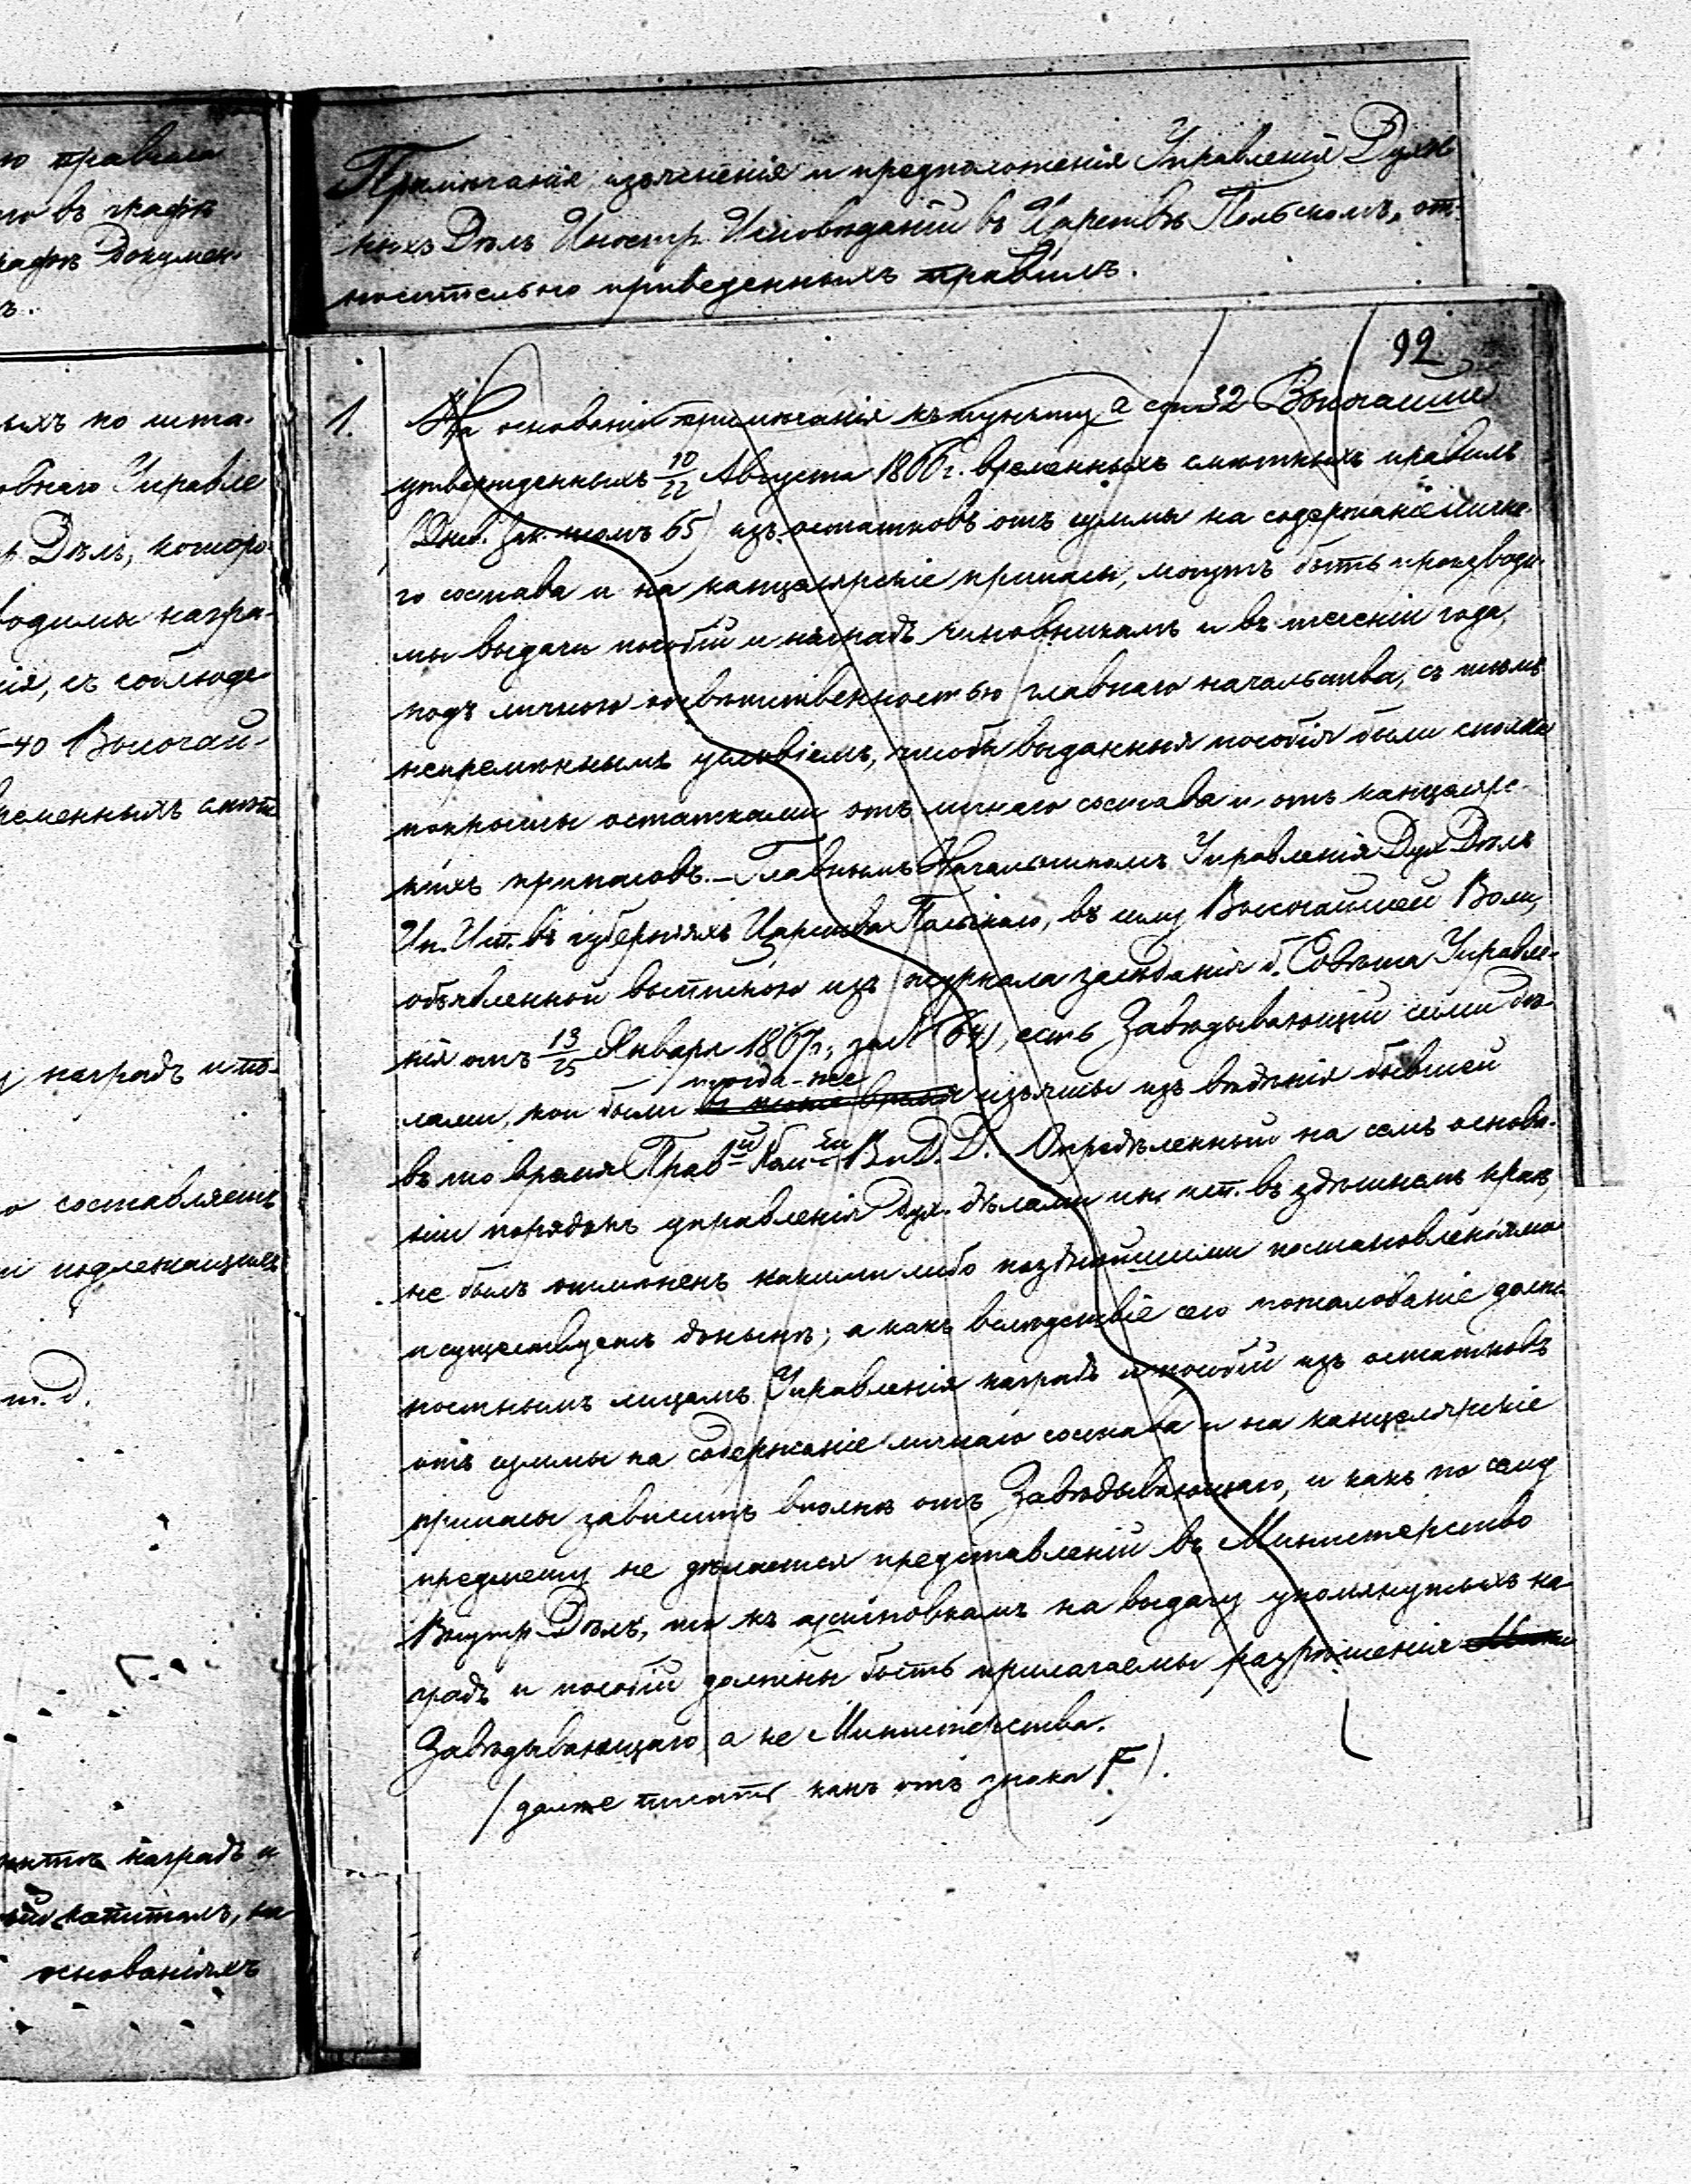 ю правила
го въ графѣ
графѣ Докумен-
ъ.
ыхъ по шта-
овнаго Управле
р Дѣлъ, которо
водимы награ-
ія, съ соблюде-
-40 Высочай-
ременныхъ смѣт
награды и по-
о составляетъ
и подлежащихъ
т. д.
наградъ и
капиталъ, на
основаніяхъ
Примѣчанія, изъясненія и предположенія Управленія Духов
ныхъ Дѣлъ Иностр. Исповѣданій въ Царствѣ Польскомъ, от-
носительно приведенныхъ правилъ.
92
1. На основаніи примѣчанія къ пункту а ст. 32 Высочайше
утвержденныхъ 10/22 Августа 1866 г. временныхъ смѣтныхъ правилъ
(Днев. Зак. томъ 65) изъ остатковъ отъ суммы на содержаніе лична-
го состава и на канцелярскіе припасы, могутъ быть производи-
мы выдачи пособій и наградъ чиновникамъ и въ теченіи года,
подъ личною отвѣтственностью главнаго начальства, съ тѣмъ
непремѣннымъ условіемъ, чтобы выданныя пособія были сполна
покрыты остатками отъ личнаго состава и отъ канцелярс-
кихъ припасовъ. – Главнымъ Начальникомъ Управленія Дух. Дѣлъ
Ин. Исп. въ губерніяхъ Царства Польскаго, въ силу Высочайшей Воли,
объявленной выпискою изъ журнала засѣданія б. Совѣта Управле-
нія отъ 13/25 Января 1867 г., за № 64), есть Завѣдывающій сими дѣ-
тогда-же
лами, кои были изъяты изъ вѣдѣнія бывшей
въ то время Прав-ой Ком-іи Вн. Д. Д. – Опредѣленный на семъ основа-
ніи порядокъ управленія Дух. дѣлами ин. исп. въ здѣшнемъ краѣ,
не былъ отмѣненъ какими либо позднѣйшими постановленіями
и существуетъ донынѣ; а какъ вслѣдствіе сего пожалованіе долж-
ностнымъ лицамъ Управленія наградъ и пособій изъ остатковъ
отъ суммы на содержаніе личнаго состава и на канцелярскіе
припасы зависитъ вполнѣ отъ Завѣдывающаго, и какъ по сему
предмету не дѣлается представленій въ Министерство
Внутр. Дѣлъ, то къ ассигновкамъ на выдачу упомянутыхъ на-
градъ и пособій должны быть прилагаемы разрѣшенія
Завѣдывающаго, а не Министерства.
(далѣе писать какъ отъ знака F).